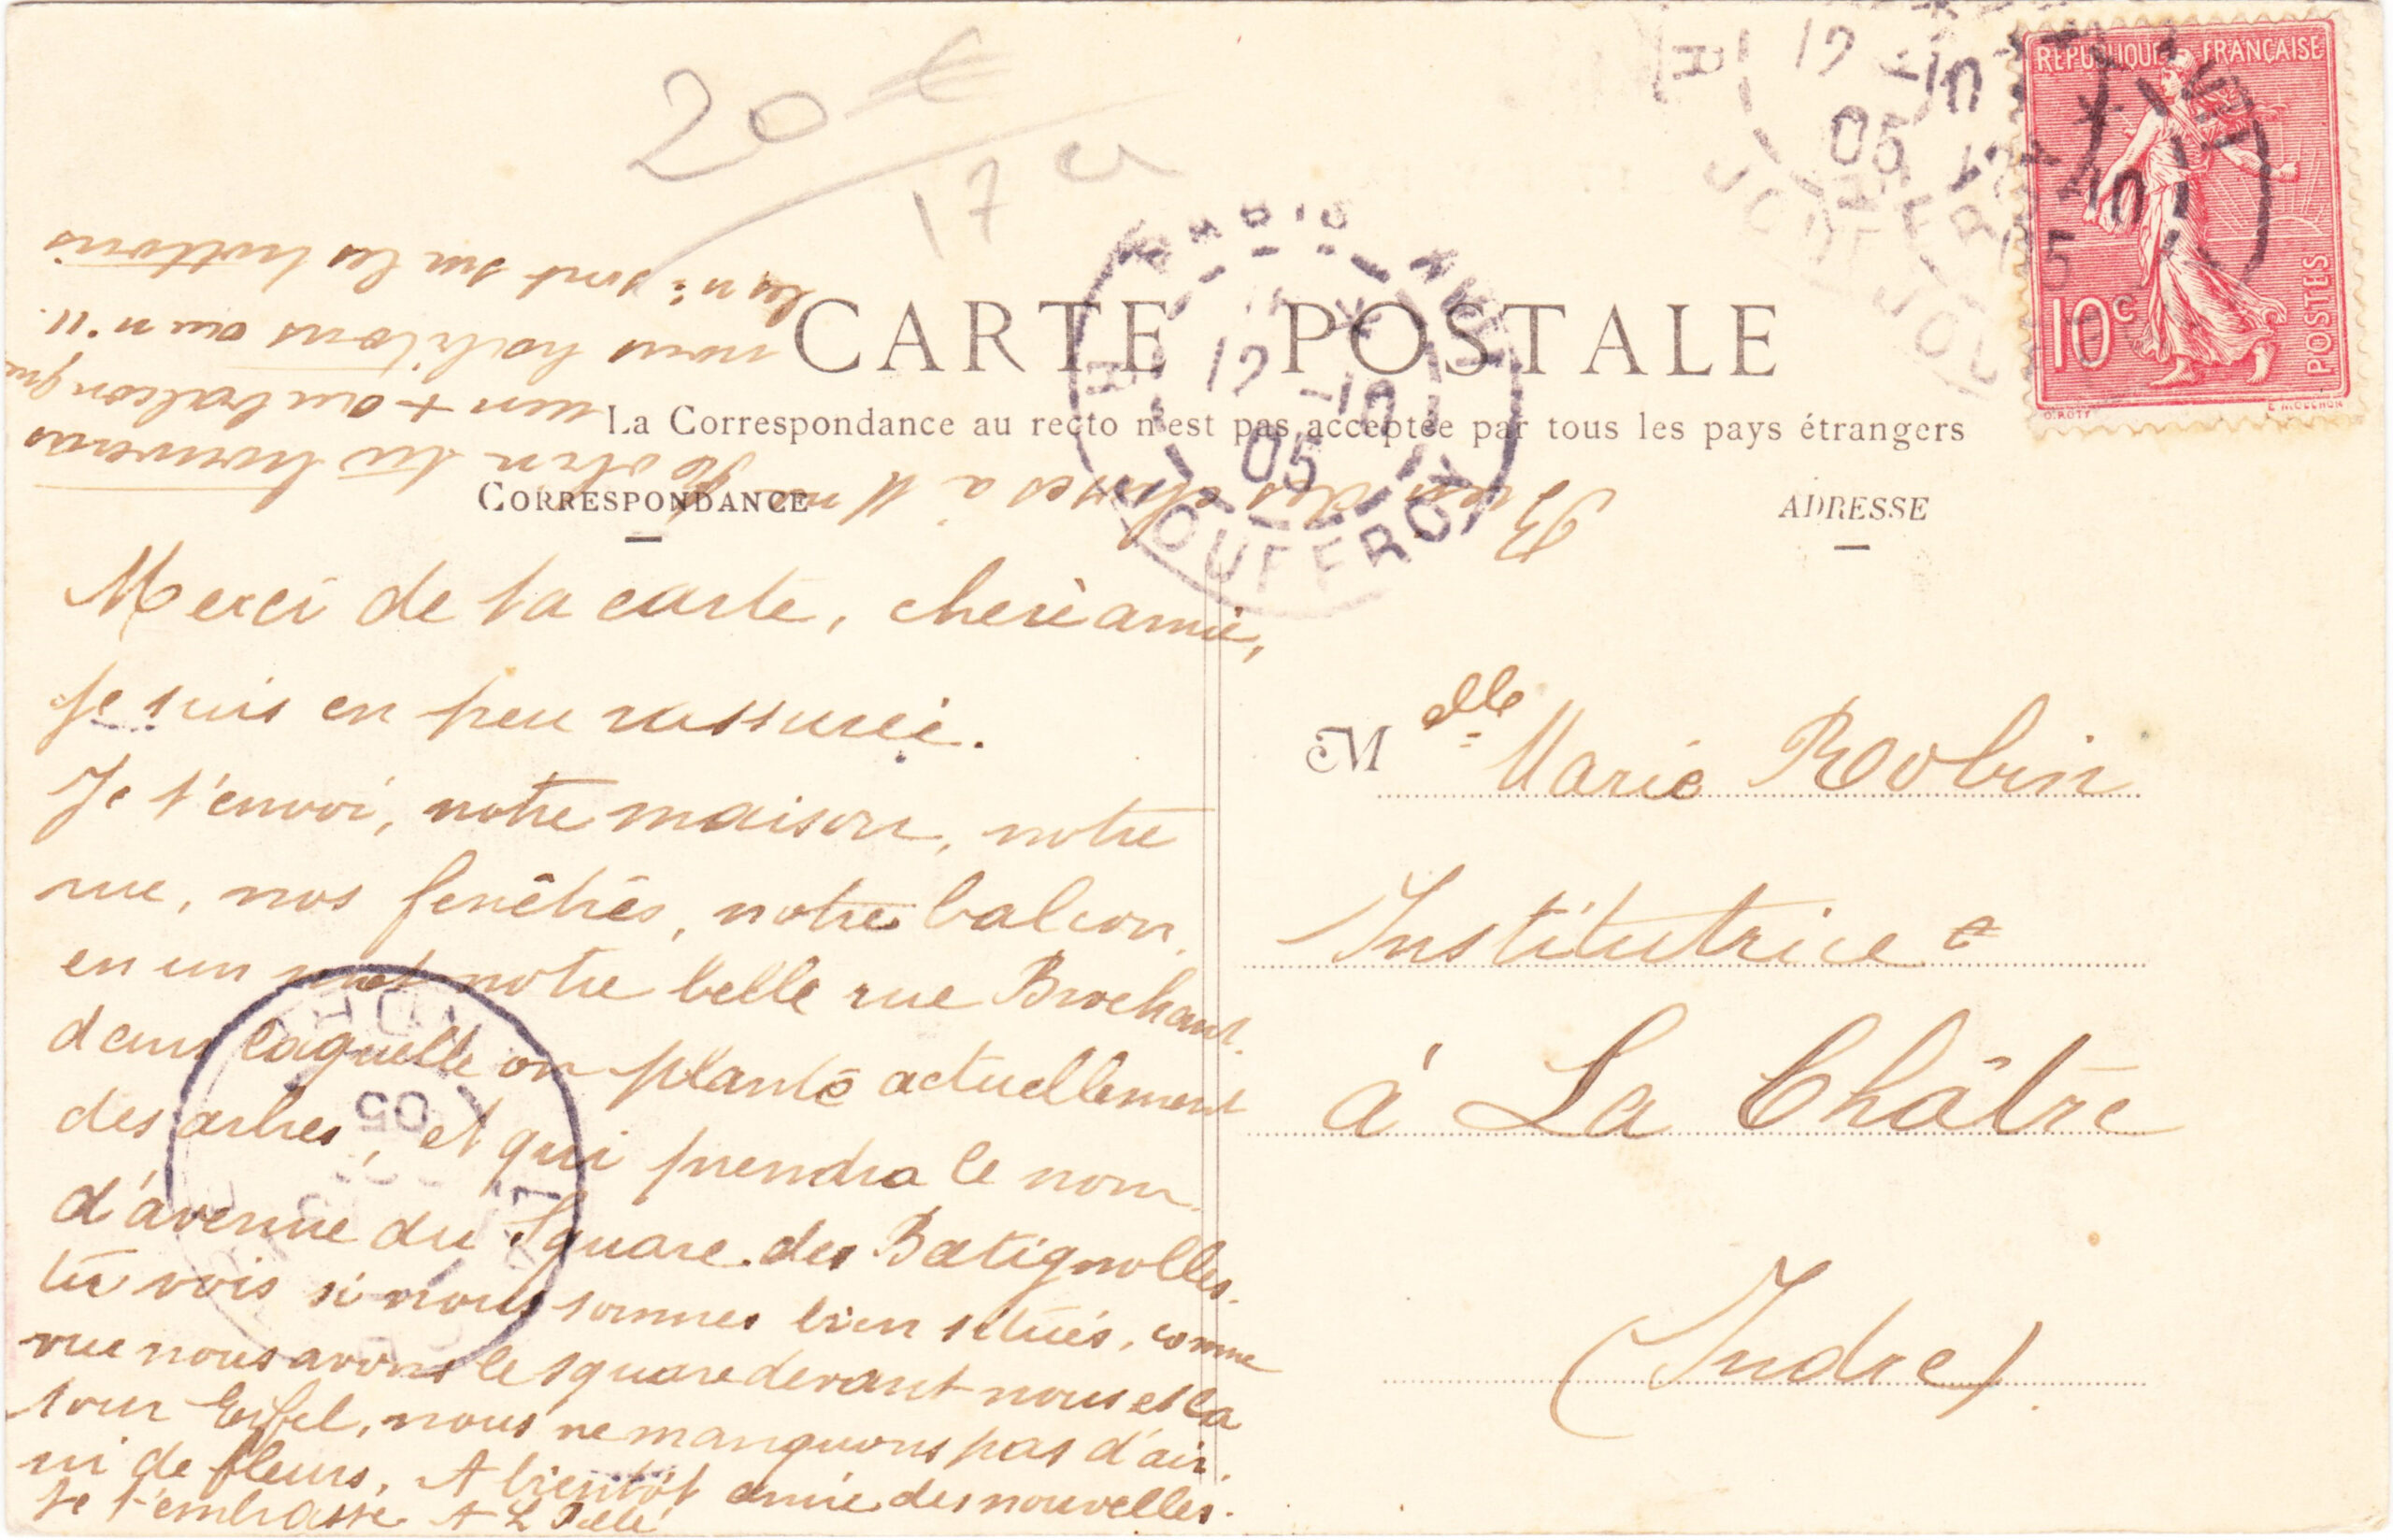 20 €
17 a
REPUBLIQUE FRANÇAISE
10c
POSTES
O. ROTY
E. MOUCHON
PARIS
12 -10
05
JOUFFROY
CARTE POSTALE
La Correspondance au recto n'est pas acceptée par tous les pays étrangers
CORRESPONDANCE
ADRESSE
Merci de ta carte, cherè amie,
je suis en peu rassurée.
Je t'envoi, notre maison, notre
rue, nos fenêtres, notre balcon,
en un mot notre belle rue Brochant.
dans laquelle on plante actuellement
des arbres, et qui prendra le nom
d'avenue du Square des Batignolles.
tu vois si nous sommes bien situés, comme
vue nous avons le square devant nous et la
tour Eiffel, nous ne manquons pas d'air,
ni de fleurs, A bientôt amie des nouvelles.
Je t'embrasse A L
Bien des choses à Mme Robin tu trouveras
un + au balcon que
nous habitons au n° 11.
les nos sont sur les trottoirs
Melle Marie Robin
Institutrice
à La Châtre
(Indre).
05